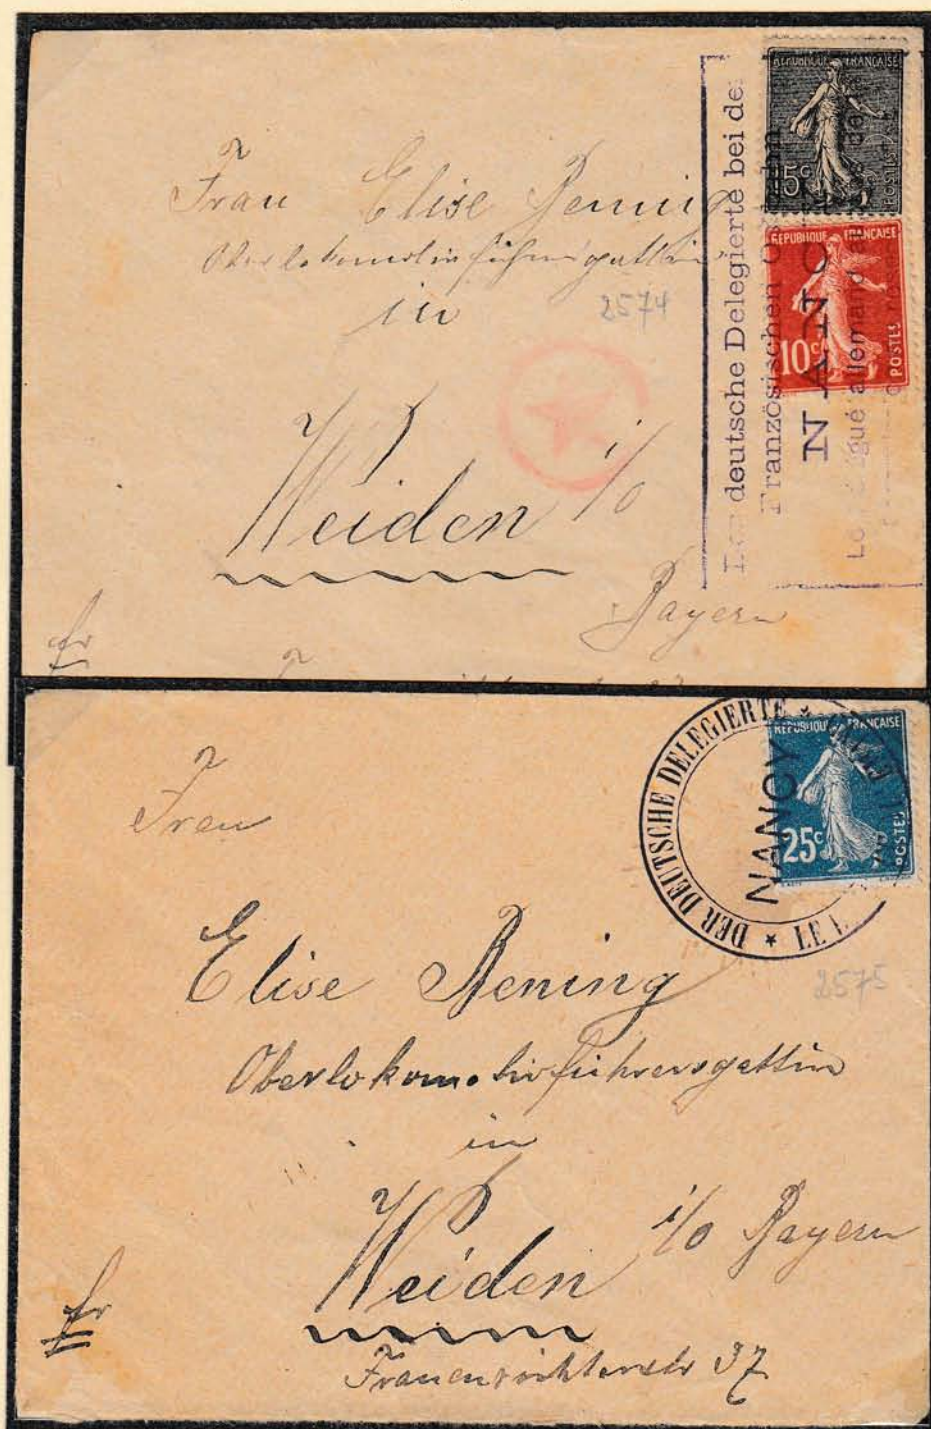 Frau Elise Bening
Oberlokomotivführersgattin
in
2574
Weiden i/O
Bayern
fr
deutsche Delegierte bei de
Französischen
NANC
allemand
REPUBLIQUE FRANÇAISE
15c
POSTES
REPUBLIQUE FRANÇAISE
10c
POSTES
Frau
Elise Bening
Oberlokomotivführersgattin
in
Weiden i/O Bayern
Frauenrichterstr 37
fr
2575
DER DEUTSCHE DELEGIERTE
NANCY
REPUBLIQUE FRANÇAISE
25c
POSTES